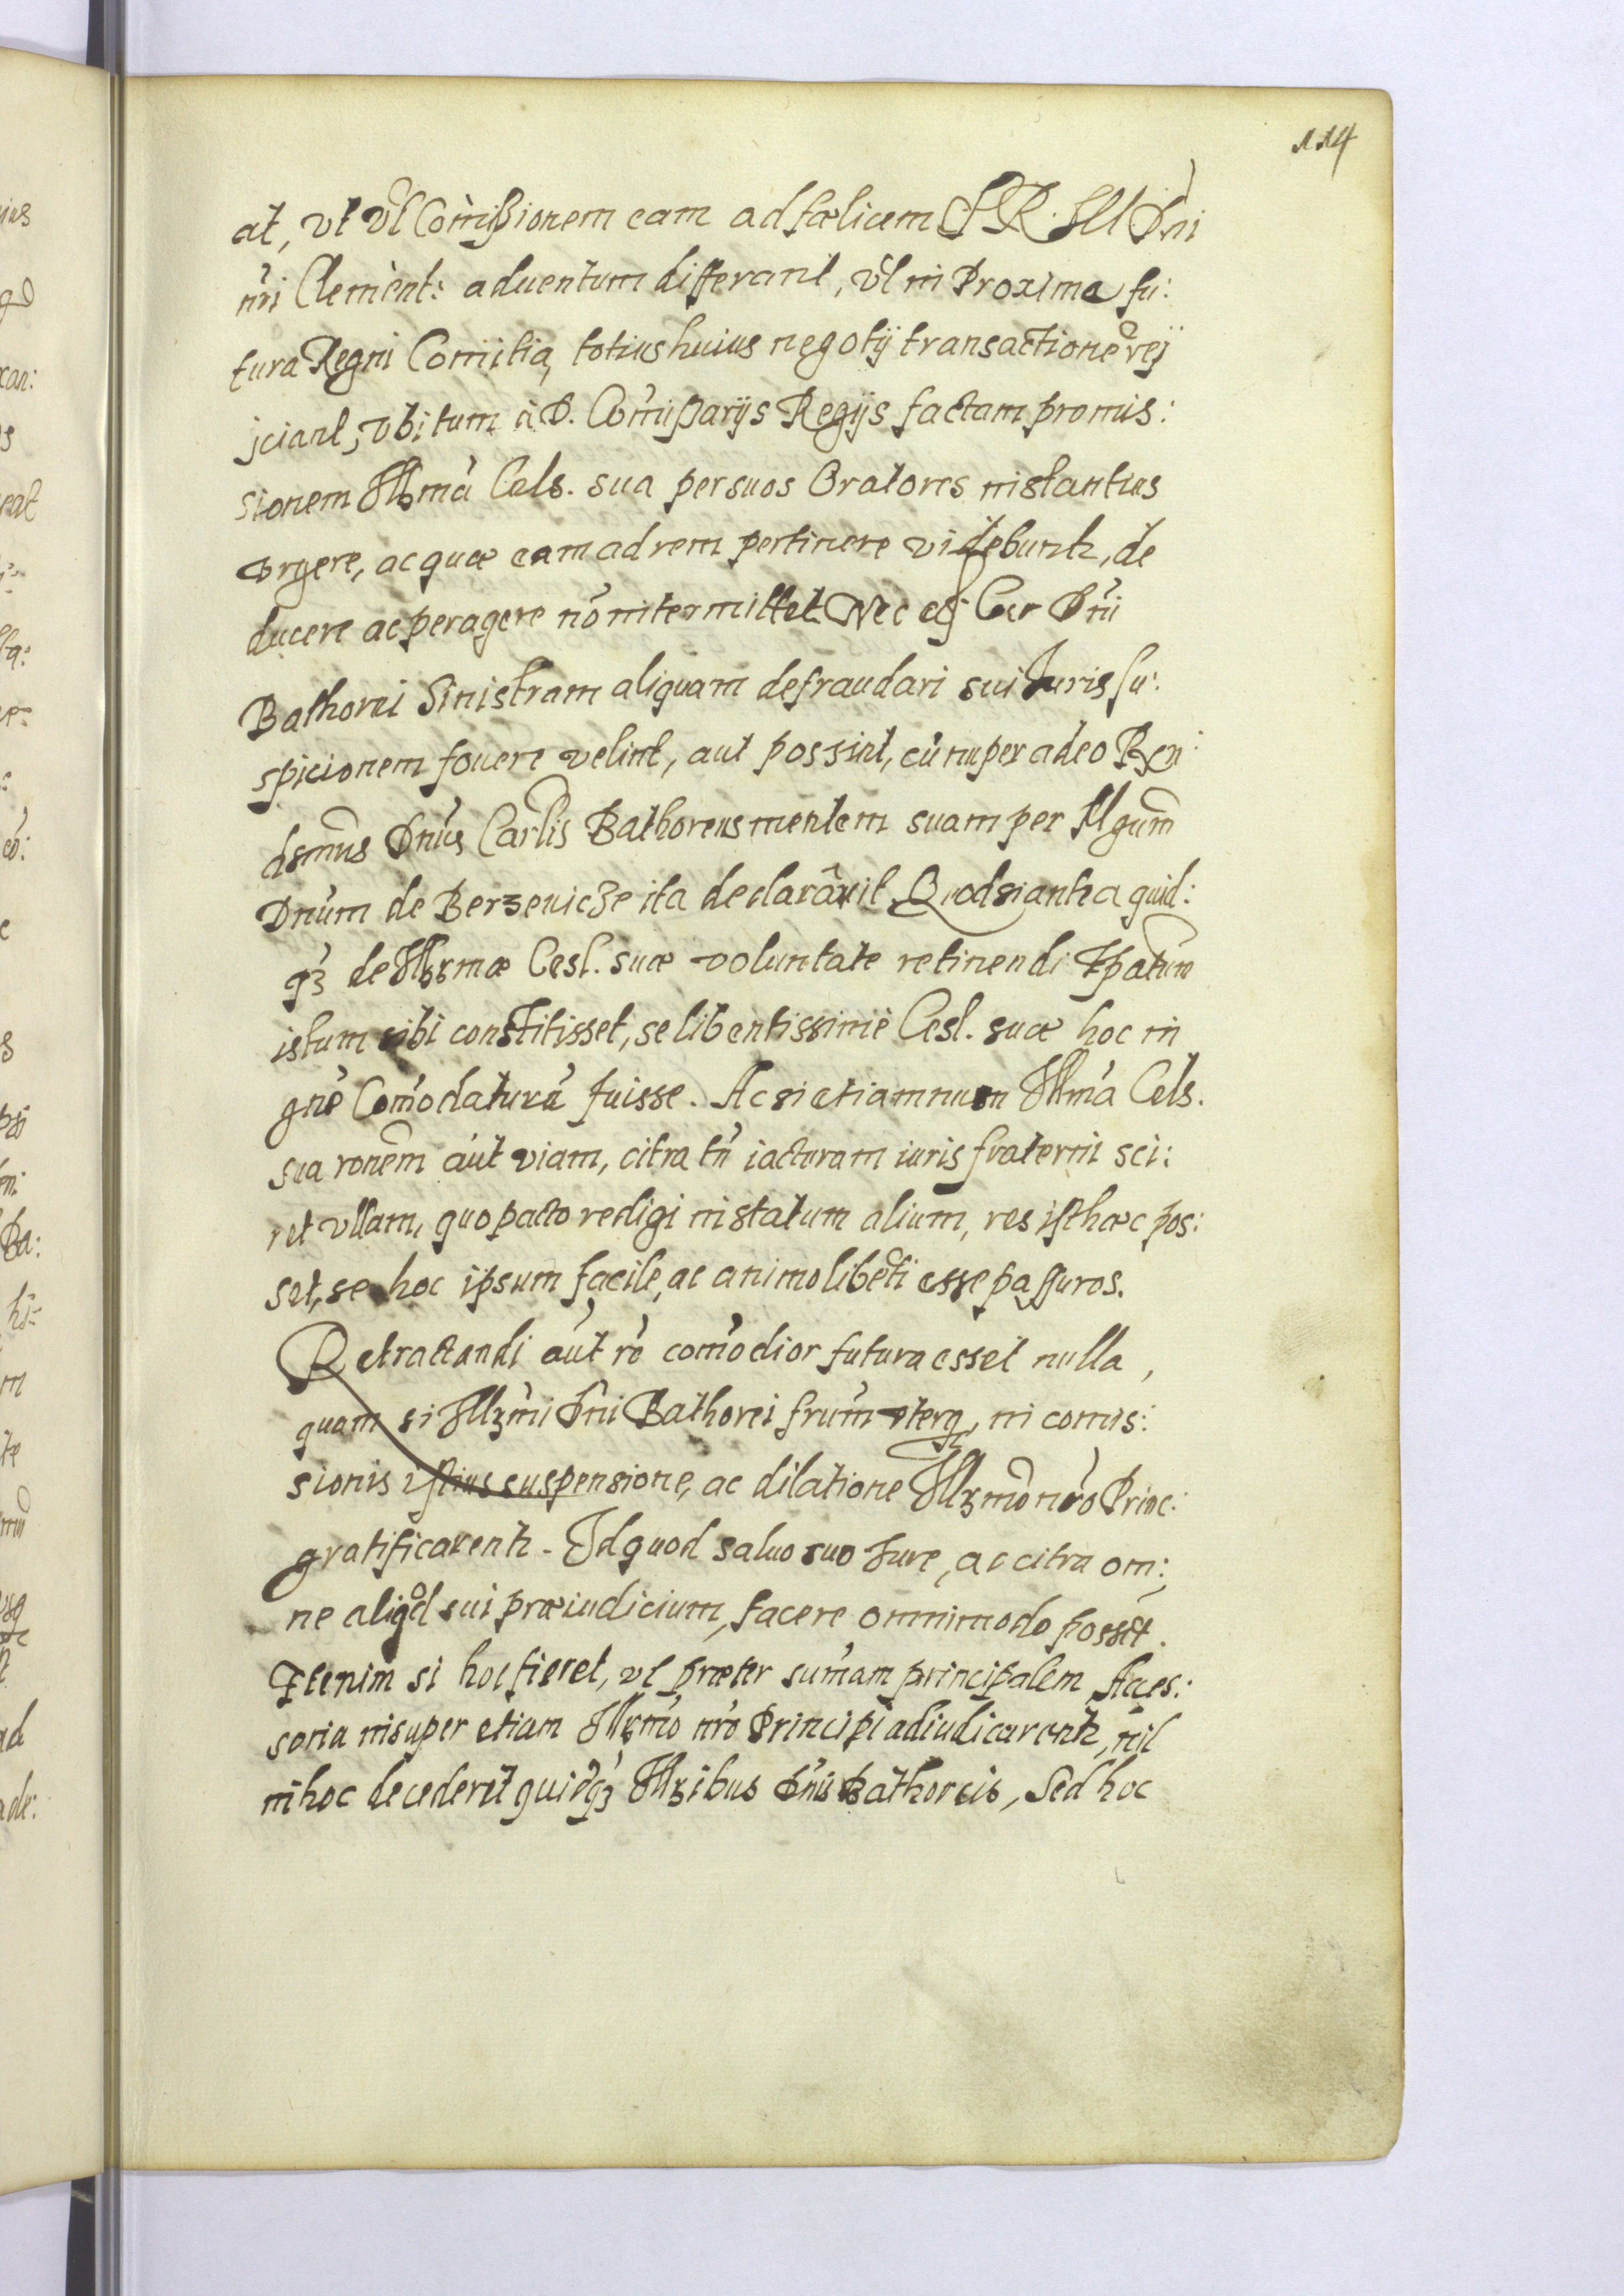 114
at, vt vl Comißionem eam ad fœlicem S R. Mtt Dni
nri Clement: aduentum differant, vl in Proxima fu:
tura Regni Comitia, totius huius negotij transactione rej
jciant, vbi tum à D. Comißarijs Regijs factam promis:
sionem Illma Cels. sua per suos Oratores instantius
vrgere, ac quæ eam ad rem pertinere videbunt, de
ducere ac peragere no intermittet. Nec est Cur Dni
Bathorei Sinistram aliquam defraudari sui Juris su:
spicionem fouere velint, aut possint, cu nuper adeo Ren:
dsmus Dnus Carlis Bathoreus mentem suam per Mgum
Dnum de Berzeuicze ita declarauit. Quod si antea quid:
qz de Illmæ Cesl. suæ voluntate retinendi Epatum
istum sibi constitisset, se libentissimè Cesl. suæ hoc in
gne Comodaturu fuisse. Ac si etiamnum Illma Cels.
sua ronem aut viam, citra tn iacturam iuris fraterni sci:
ret vllam, quo pacto redigi in statum alium, res isthæc pos:
set, se hoc ipsum facile, ac animo libeti esse passuros.
Retractandi aut ro comodior futura esset nulla,
quam si Illmi Dni Bathorei frum vterq, in comis:
sionis istius suspensione, ac dilatione Illmo nro Princ:
gratificarent. Id quod saluo suo Jure, ac citra om:
ne aliqd sui præiudicium, facere omnimodo posset.
Etenim si hoc fieret, vt præter sumam principalem Acces:
soria insuper etiam Illmo nro Principi adiudicarent, nil
in hoc decederet quicqz Illribus Dnis Bathoreis, Sed hoc